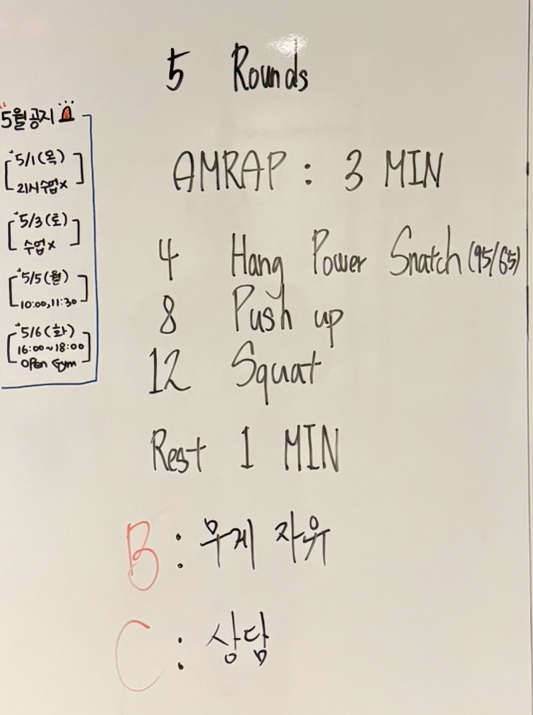 5 Rounds
AMRAP : 3 MIN
4 Hang Power Snatch (95/65)
8 Push up
12 Squat
Rest 1 MIN
B : 무게 자유
C : 상담
5월 공지
5/1(목)
21시 수업 x
5/3(토)
수업 x
5/5(월)
10:00, 11:30
5/6(화)
16:00~18:00
open Gym